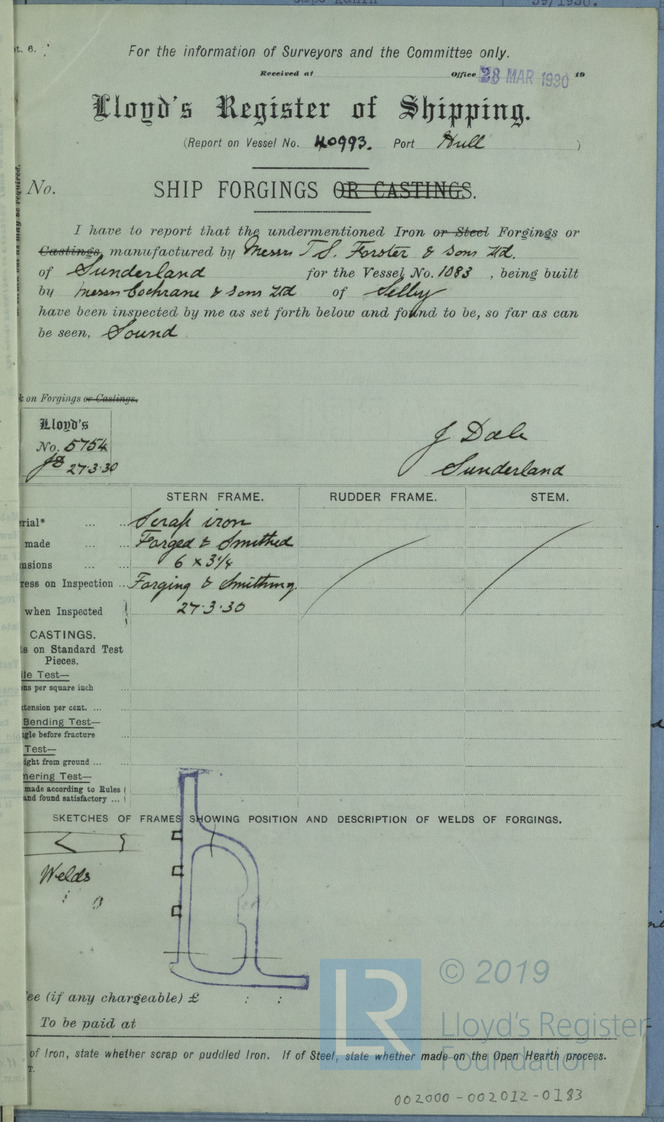 39/1930.
t. 6.
For the information of Surveyors and the Committee only.
Received at Office 28 MAR 1930 19
Lloyd's Register of Shipping.
(Report on Vessel No. 40993. Port Hull )
No. SHIP FORGINGS OR CASTINGS.
I have to report that the undermentioned Iron or Steel Forgings or
Castings, manufactured by Messrs T.S. Forster & Sons Ltd.
of Sunderland for the Vessel No. 1083 , being built
by Messrs Cochrane & Sons Ltd of Selby
have been inspected by me as set forth below and found to be, so far as can
be seen, Sound
on Forgings or Castings.
Lloyd's
No. 5754
JD 27.3.30
J Dale
Sunderland
STERN FRAME. RUDDER FRAME. STEM.
rial* ... ... Scrap iron
made ... ... Forged & Smithed
nsions ... ... 6 x 3¼
ress on Inspection ... Forging & Smithing.
when Inspected 27.3.30
CASTINGS.
s on Standard Test
Pieces.
le Test—
ns per square inch ...
tension per cent. ... ...
Bending Test—
gle before fracture ...
Test—
ight from ground ... ...
mering Test—
made according to Rules
and found satisfactory ...
SKETCHES OF FRAMES SHOWING POSITION AND DESCRIPTION OF WELDS OF FORGINGS.
Welds
ee (if any chargeable) £ : :
To be paid at
of Iron, state whether scrap or puddled Iron. If of Steel, state whether made on the Open Hearth process.
T.
LR
© 2019
Lloyd's Register
Foundation
002000-002012-0183